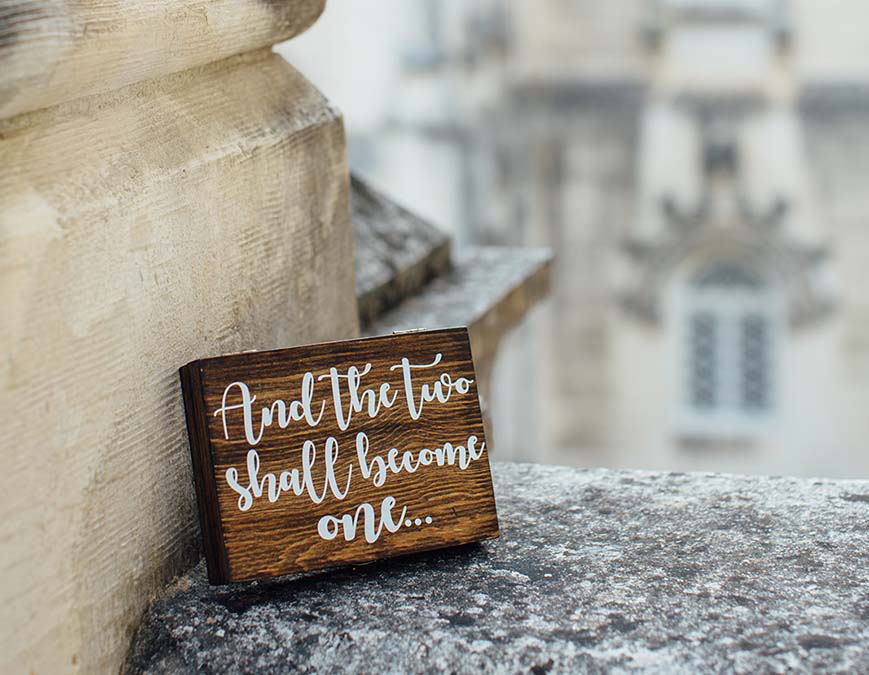 And the two
shall become
one...